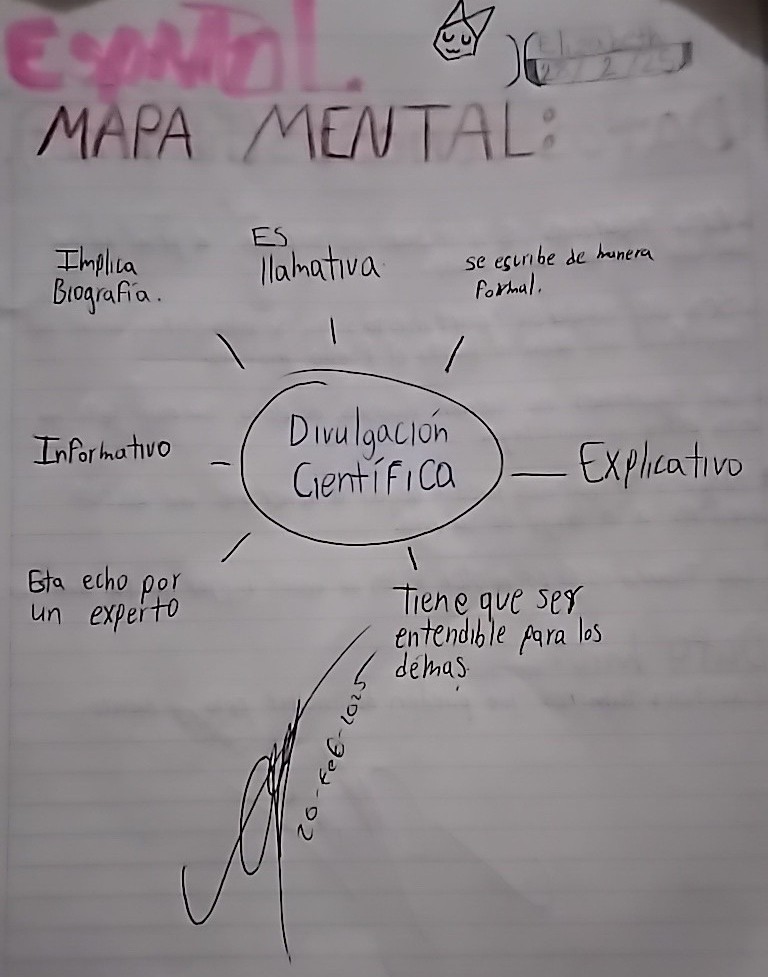 ESPAÑOL.
MAPA MENTAL:
Implica
Biografía.
ES
llamativa
se escribe de manera
formal.
Informativo
Divulgación
Científica
Explicativo
Esta echo por
un experto
Tiene que ser
entendible para los
démas.